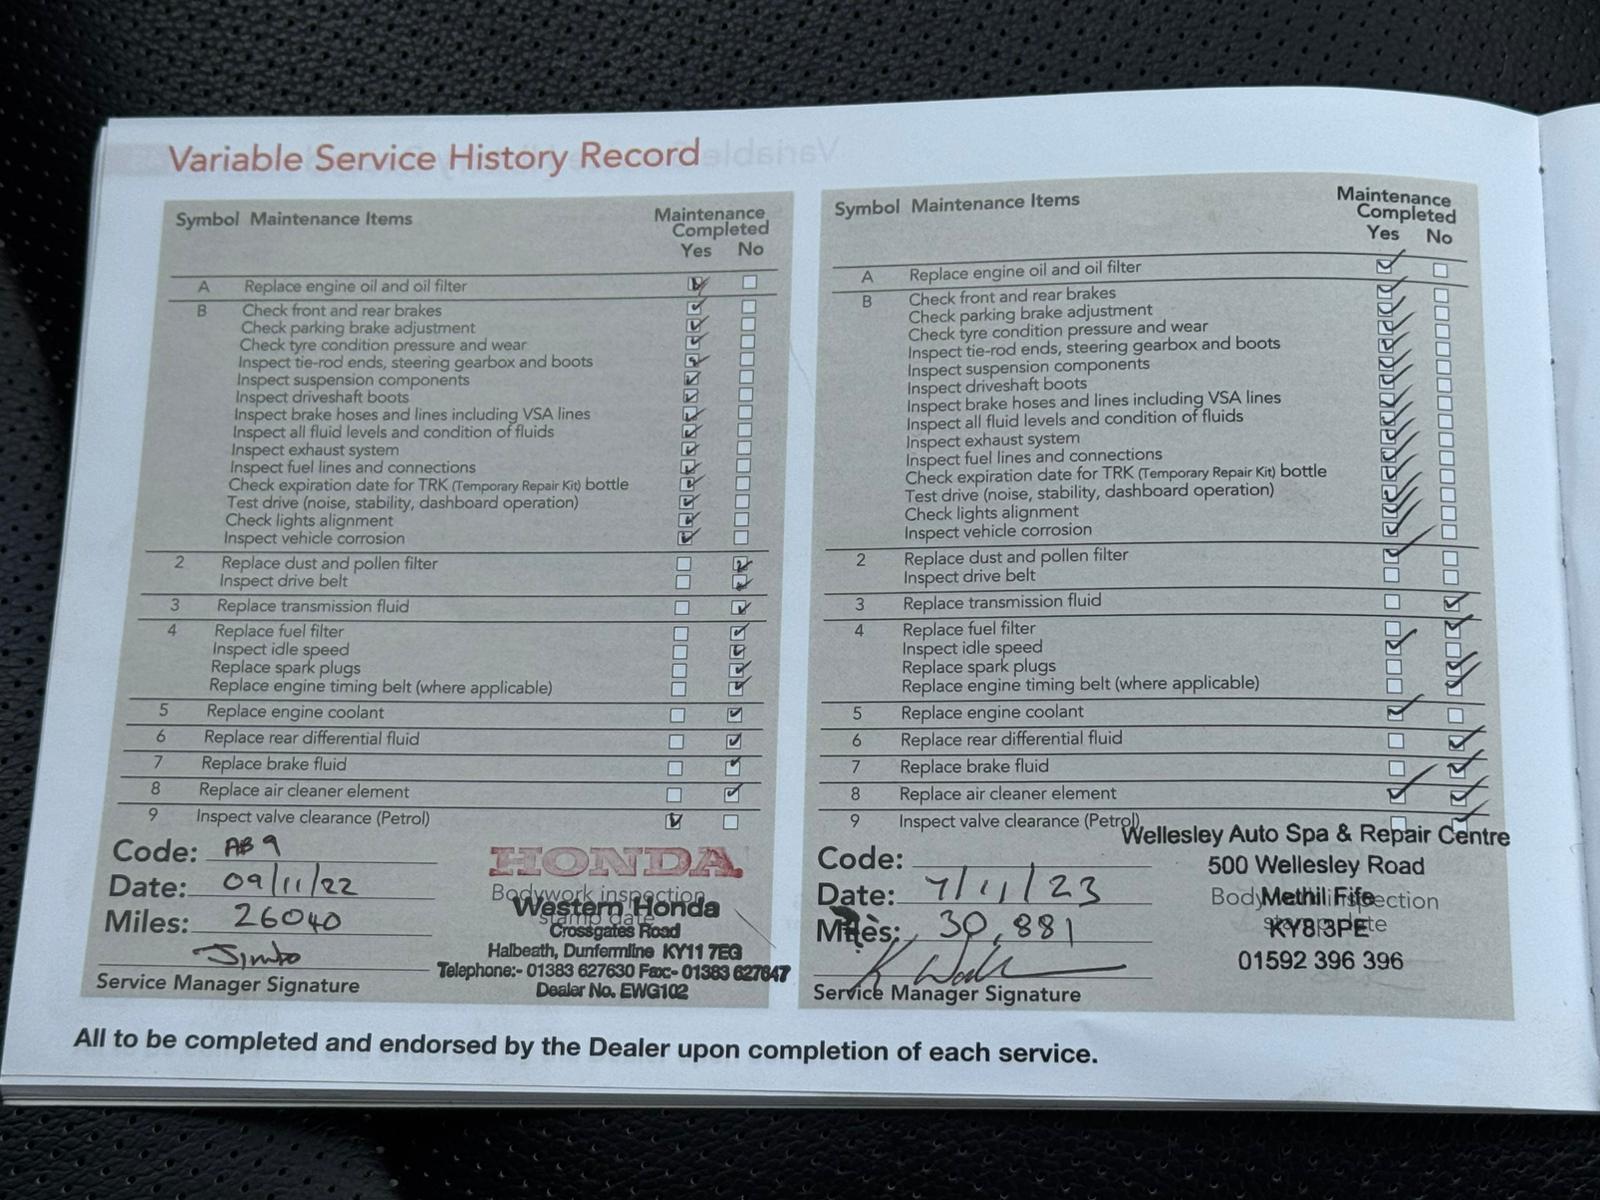 Variable Service History Record
Symbol Maintenance Items
Maintenance
Completed
Yes No
A Replace engine oil and oil filter
B Check front and rear brakes
Check parking brake adjustment
Check tyre condition pressure and wear
Inspect tie-rod ends, steering gearbox and boots
Inspect suspension components
Inspect driveshaft boots
Inspect brake hoses and lines including VSA lines
Inspect all fluid levels and condition of fluids
Inspect exhaust system
Inspect fuel lines and connections
Check expiration date for TRK (Temporary Repair Kit) bottle
Test drive (noise, stability, dashboard operation)
Check lights alignment
Inspect vehicle corrosion
2 Replace dust and pollen filter
Inspect drive belt
3 Replace transmission fluid
4 Replace fuel filter
Inspect idle speed
Replace spark plugs
Replace engine timing belt (where applicable)
5 Replace engine coolant
6 Replace rear differential fluid
7 Replace brake fluid
8 Replace air cleaner element
9 Inspect valve clearance (Petrol)
Code: AB9
Date: 09/11/22
Miles: 26040
Service Manager Signature
HONDA
Bodywork inspection
stamp date
Western Honda
Crossgates Road
Halbeath, Dunfermline KY11 7EG
Telephone:- 01383 627630 Fax:- 01383 627647
Dealer No. EWG102
Symbol Maintenance Items
Maintenance
Completed
Yes No
A Replace engine oil and oil filter
B Check front and rear brakes
Check parking brake adjustment
Check tyre condition pressure and wear
Inspect tie-rod ends, steering gearbox and boots
Inspect suspension components
Inspect driveshaft boots
Inspect brake hoses and lines including VSA lines
Inspect all fluid levels and condition of fluids
Inspect exhaust system
Inspect fuel lines and connections
Check expiration date for TRK (Temporary Repair Kit) bottle
Test drive (noise, stability, dashboard operation)
Check lights alignment
Inspect vehicle corrosion
2 Replace dust and pollen filter
Inspect drive belt
3 Replace transmission fluid
4 Replace fuel filter
Inspect idle speed
Replace spark plugs
Replace engine timing belt (where applicable)
5 Replace engine coolant
6 Replace rear differential fluid
7 Replace brake fluid
8 Replace air cleaner element
9 Inspect valve clearance (Petrol)
Code:
Date: 7/11/23
Miles: 30,881
Service Manager Signature
Wellesley Auto Spa & Repair Centre
500 Wellesley Road
Methil Fife
KY8 3PE
01592 396 396
Bodywork inspection
stamp date
All to be completed and endorsed by the Dealer upon completion of each service.